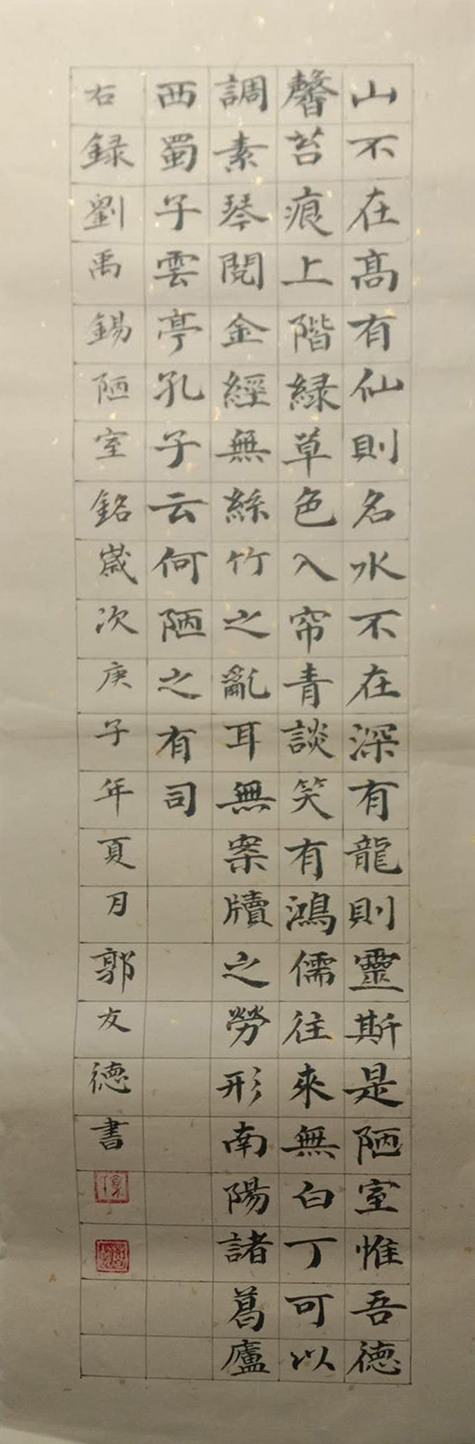 山不在高有仙則名水不在深有龍則靈斯是陋室惟吾德
馨苔痕上階緑草色入帘青談笑有鴻儒往來無白丁可以
調素琴閱金經無絲竹之亂耳無案牘之勞形南陽諸葛廬
西蜀子雲亭孔子云何陋之有司
右録劉禹錫陋室銘歲次庚子年夏月郭友德書